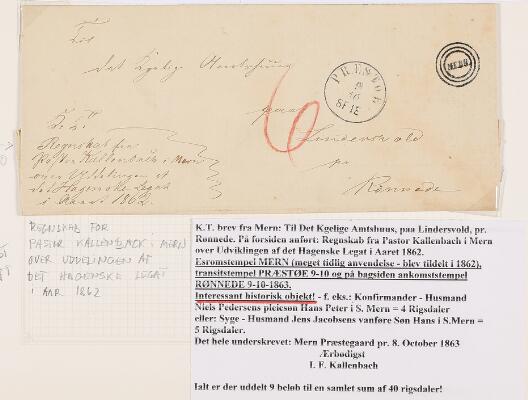 Til
det Kgelige Amtshuus
paa
Lindersvold
pr
Rønnede
K. T.
Regnskab fra
Pastor Kallenbach i Mern
over Uddelingen af
det Hagenske Legat
i Aaret 1862.
6
PRÆSTØE
MERN
REGNSKAB FOR
PASTOR KALLENBACK i MERN
OVER UDDELINGEN AF
DET HAGENSKE LEGAT
I AAR 1862
K.T. brev fra Mern: Til Det Kgelige Amtshuus, paa Lindersvold, pr.
Rønnede. På forsiden anført: Regnskab fra Pastor Kallenbach i Mern
over Udviklingen af det Hagenske Legat i Aaret 1862.
Esromstempel MERN (meget tidlig anvendelse - blev tildelt i 1862),
transitstempel PRÆSTØE 9-10 og på bagsiden ankomststempel
RØNNEDE 9-10-1863.
Interessant historisk objekt! - f. eks.: Konfirmander - Husmand
Niels Pedersens pleiesøn Hans Peter i S. Mern = 4 Rigsdaler
eller: Syge - Husmand Jens Jacobsens vanføre Søn Hans i S.Mern =
5 Rigsdaler.
Det hele underskrevet: Mern Præstegaard pr. 8. October 1863
Ærbødigst
I. F. Kallenbach
Ialt er der uddelt 9 beløb til en samlet sum af 40 rigsdaler!